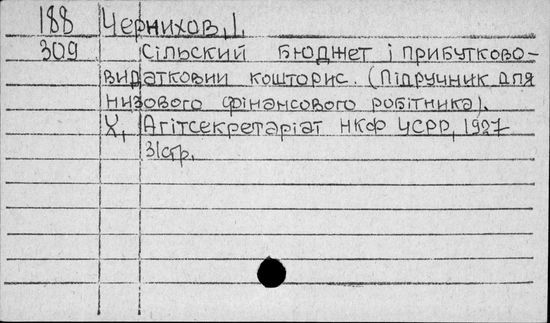 188 Чернихов, І.
309 Сільский бюджет і прибутково-
видатковий кошторис. (Підручник для
низового фінансового робітника).
Х, Агітсекретаріат НКФ УСРР, 1927
31стр.